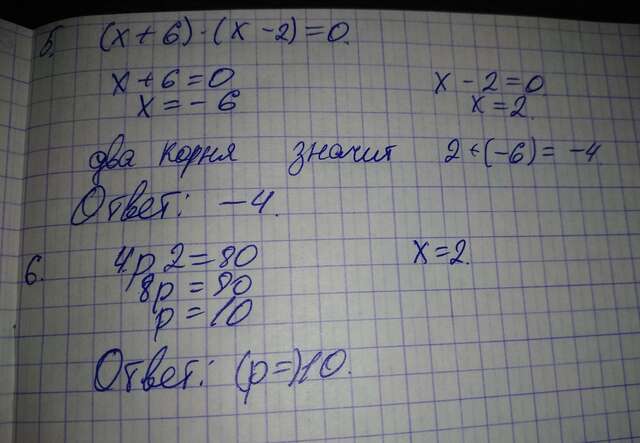 5. (x + 6) · (x - 2) = 0.
x + 6 = 0 x - 2 = 0
x = - 6 x = 2.
два корня значит 2 + (-6) = -4
Ответ: -4.
6. 4p 2 = 80 x = 2.
8p = 80
p = 10
Ответ: (p=)10.